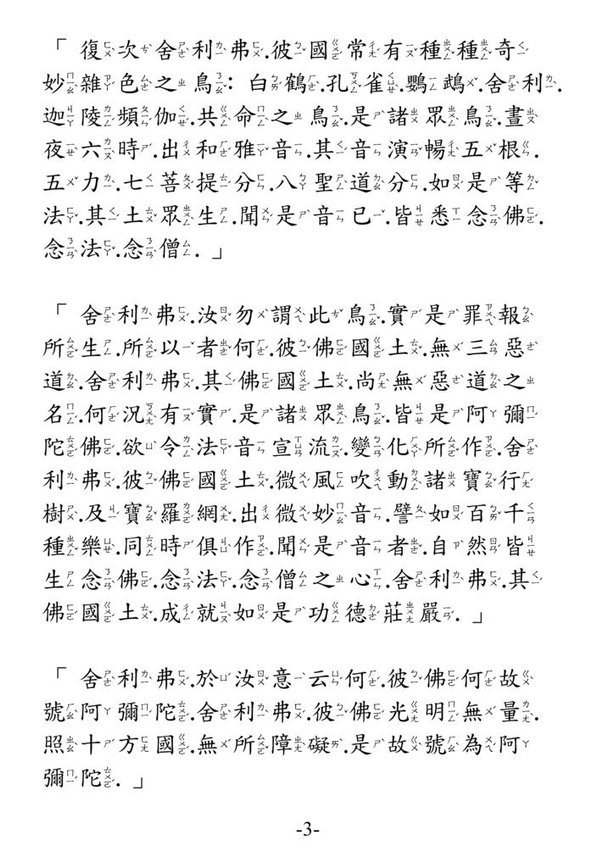 「復次舍利弗.彼國常有種種奇
妙雜色之鳥：白鶴.孔雀.鸚鵡.舍利.
迦陵頻伽.共命之鳥.是諸眾鳥.晝
夜六時.出和雅音.其音演暢五根.
五力.七菩提分.八聖道分.如是等
法.其土眾生.聞是音已.皆悉念佛.
念法.念僧.」
「舍利弗.汝勿謂此鳥.實是罪報
所生.所以者何.彼佛國土.無三惡
道.舍利弗.其佛國土.尚無惡道之
名.何況有實.是諸眾鳥.皆是阿彌
陀佛.欲令法音宣流.變化所作.舍
利弗.彼佛國土.微風吹動諸寶行
樹.及寶羅網.出微妙音.譬如百千
種樂.同時俱作.聞是音者.自然皆
生念佛.念法.念僧之心.舍利弗.其
佛國土.成就如是功德莊嚴.」
「舍利弗.於汝意云何.彼佛何故
號阿彌陀.舍利弗.彼佛光明無量.
照十方國.無所障礙.是故號為阿
彌陀.」
-3-